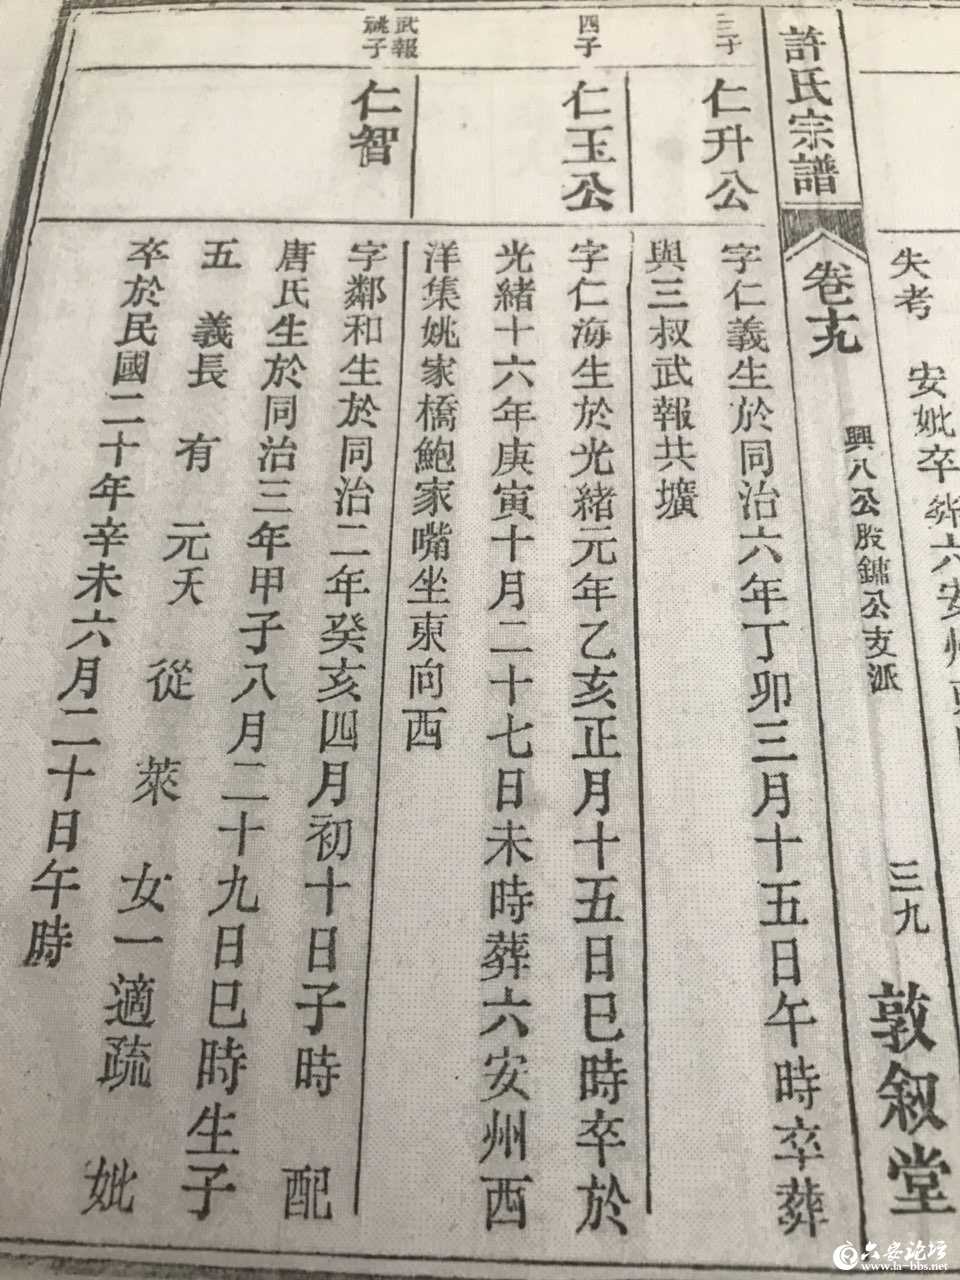 失考　安妣卒葬六安州東
許氏宗譜
卷十九
興八公股鏞公支派
三九
敦敘堂
三子
仁升公
字仁義生於同治六年丁卯三月十五日午時卒葬
與三叔武報共壙
四子
仁玉公
字仁海生於光緒元年乙亥正月十五日巳時卒於
光緒十六年庚寅十月二十七日未時葬六安州西
洋集姚家橋鮑家嘴坐東向西
武報
祧子
仁智
字鄰和生於同治二年癸亥四月初十日子時　配
唐氏生於同治三年甲子八月二十九日巳時生子
五　義長　有　元　從　萊　女一適疏　妣
卒於民國二十年辛未六月二十日午時
六安論坛
www.la-bbs.net